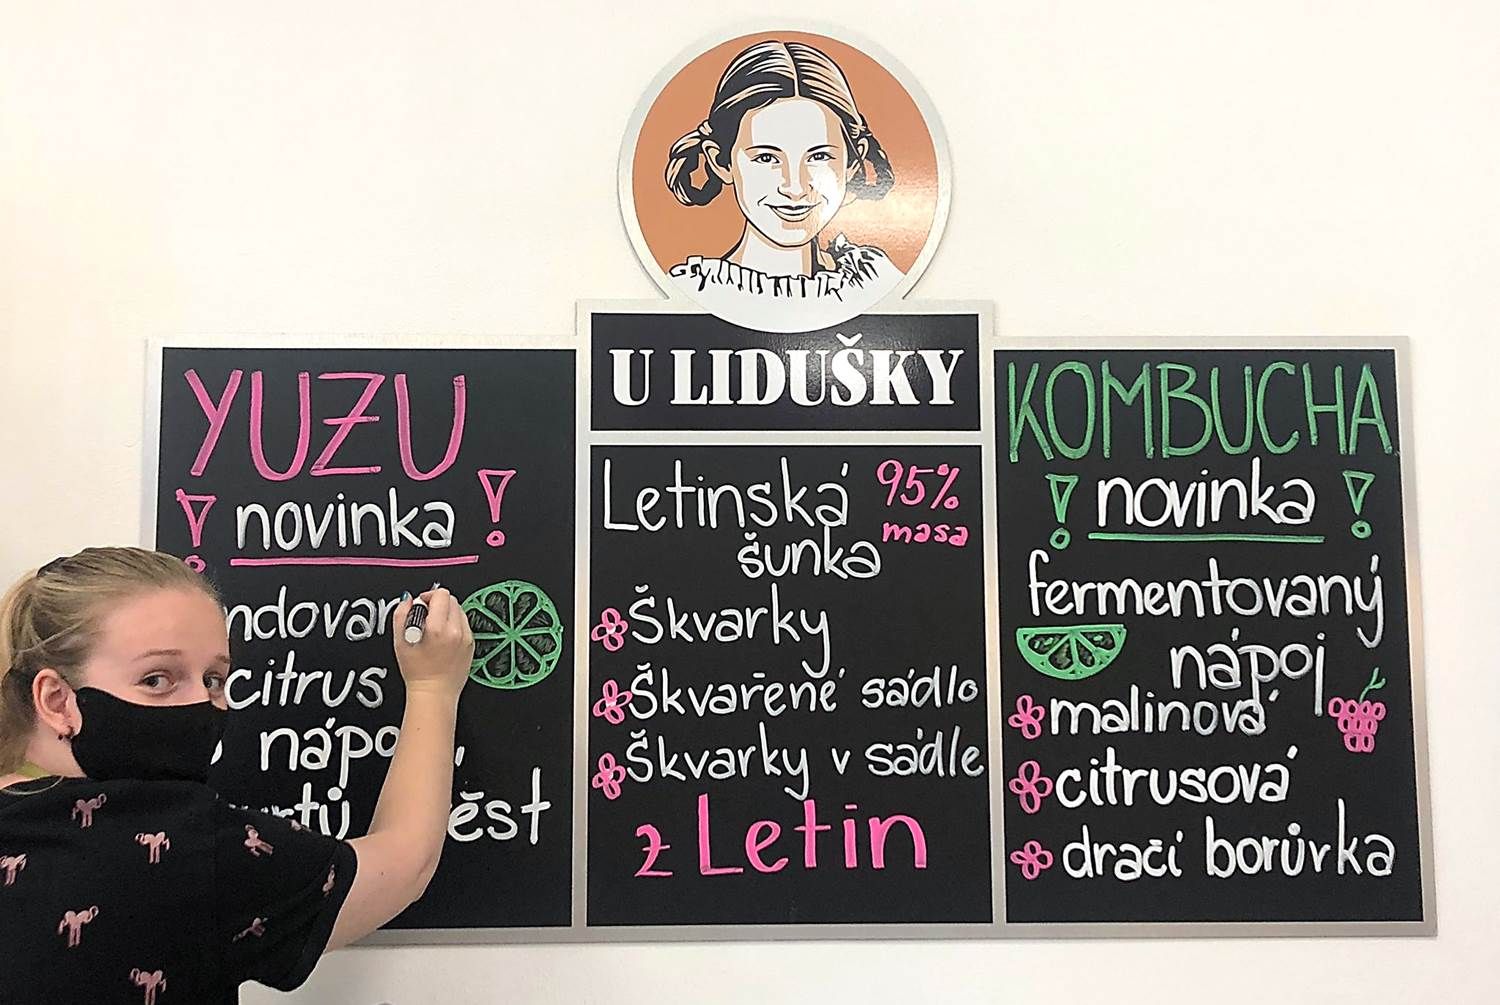 U LIDUŠKY
YUZU
! novinka !
citrus
Letinská 95%
masa
šunka
Škvarky
Škvařené sádlo
Škvarky v sádle
z Letin
KOMBUCHA
! novinka !
fermentovaný
nápoj
malinová
citrusová
dračí borůvka